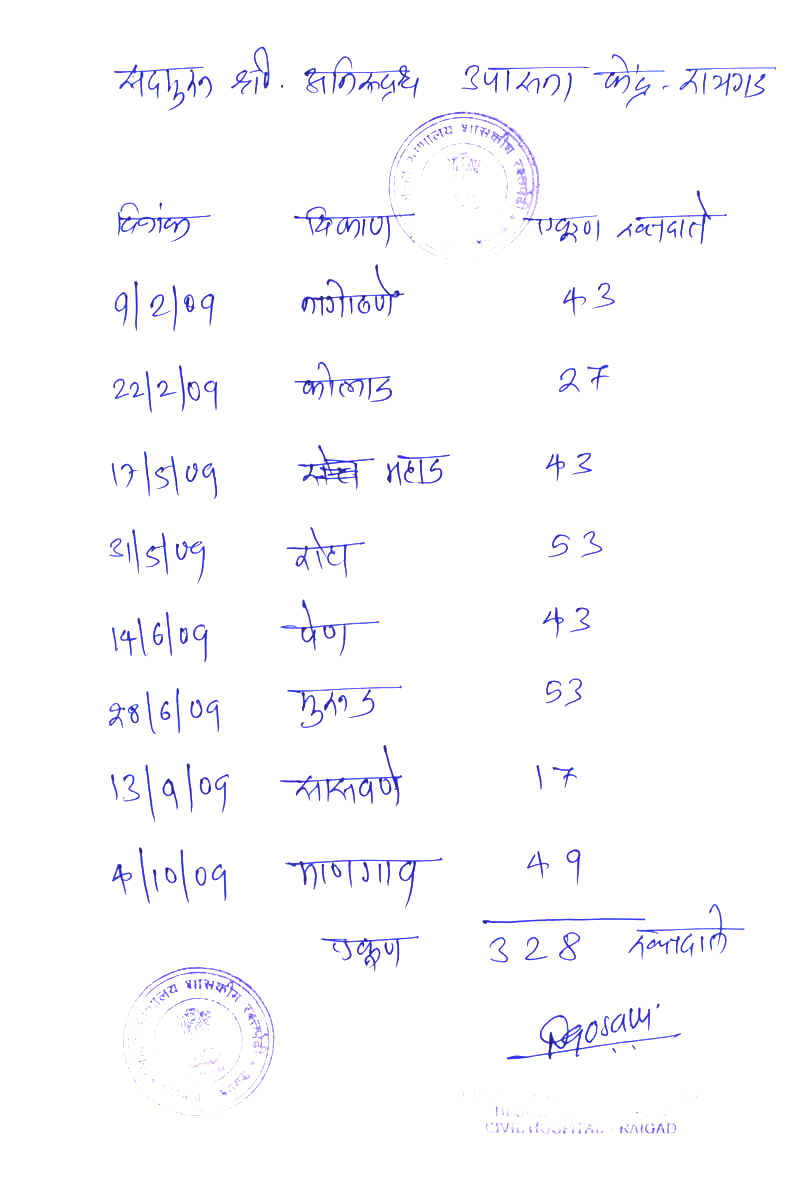 सदगुरू श्री. अनिरूद्ध उपासना केंद्र - रायगड
दिनांक ठिकाण एकूण रक्तदाते
9/2/09 नागोठणे 43
22/2/09 कोलाड 27
17/5/09 महाड 43
31/5/09 रोहा 53
14/6/09 पेण 43
28/6/09 मुरूड 53
13/9/09 सासवणे 17
4/10/09 माणगाव 49
एकूण 328 रक्तदाते
रुग्णालय शासकीय रक्तपेढी
CIVIL HOSPITAL - RAIGAD